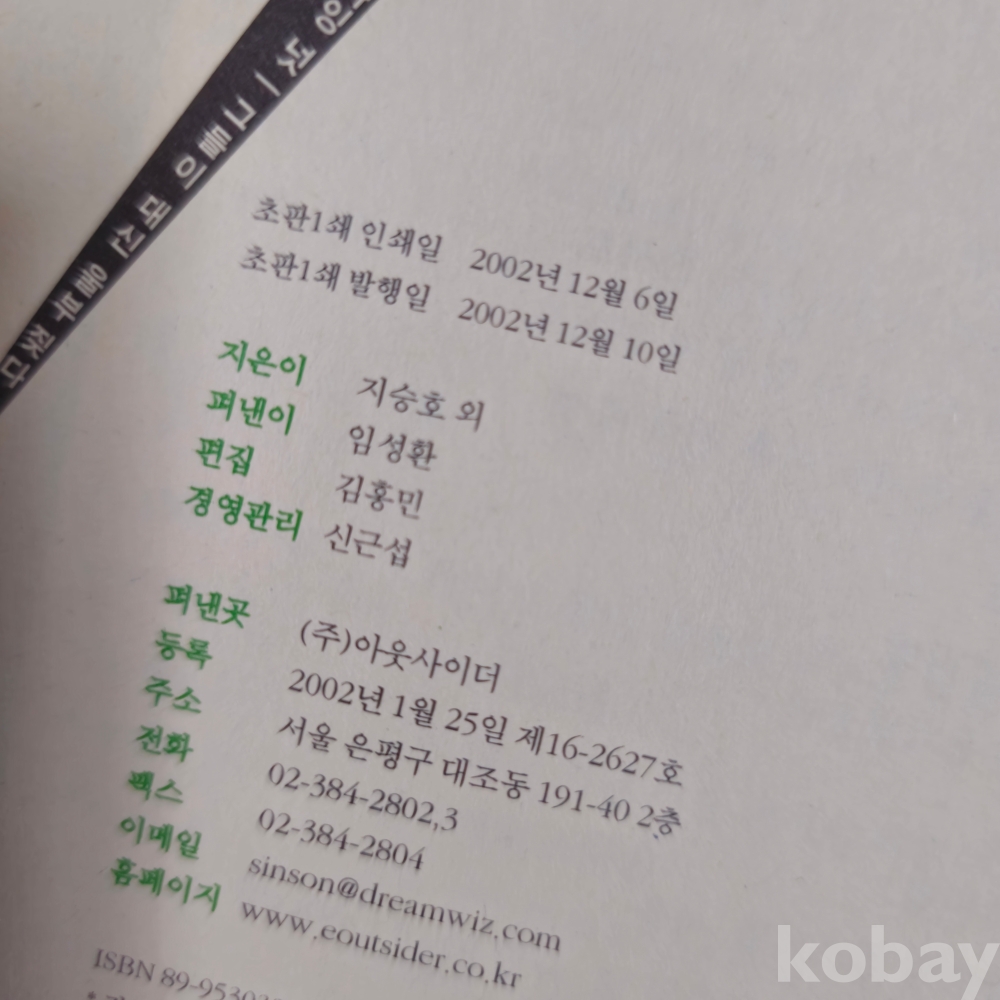 그들이 대신 울부짖다
초판1쇄 인쇄일 2002년 12월 6일
초판1쇄 발행일 2002년 12월 10일
지은이 지승호 외
펴낸이 임성환
편집 김홍민
경영관리 신근섭
펴낸곳 (주)아웃사이더
등록 2002년 1월 25일 제16-2627호
주소 서울 은평구 대조동 191-40 2층
전화 02-384-2802,3
팩스 02-384-2804
이메일 sinson@dreamwiz.com
홈페이지 www.eoutsider.co.kr
ISBN 89-9530
kobay